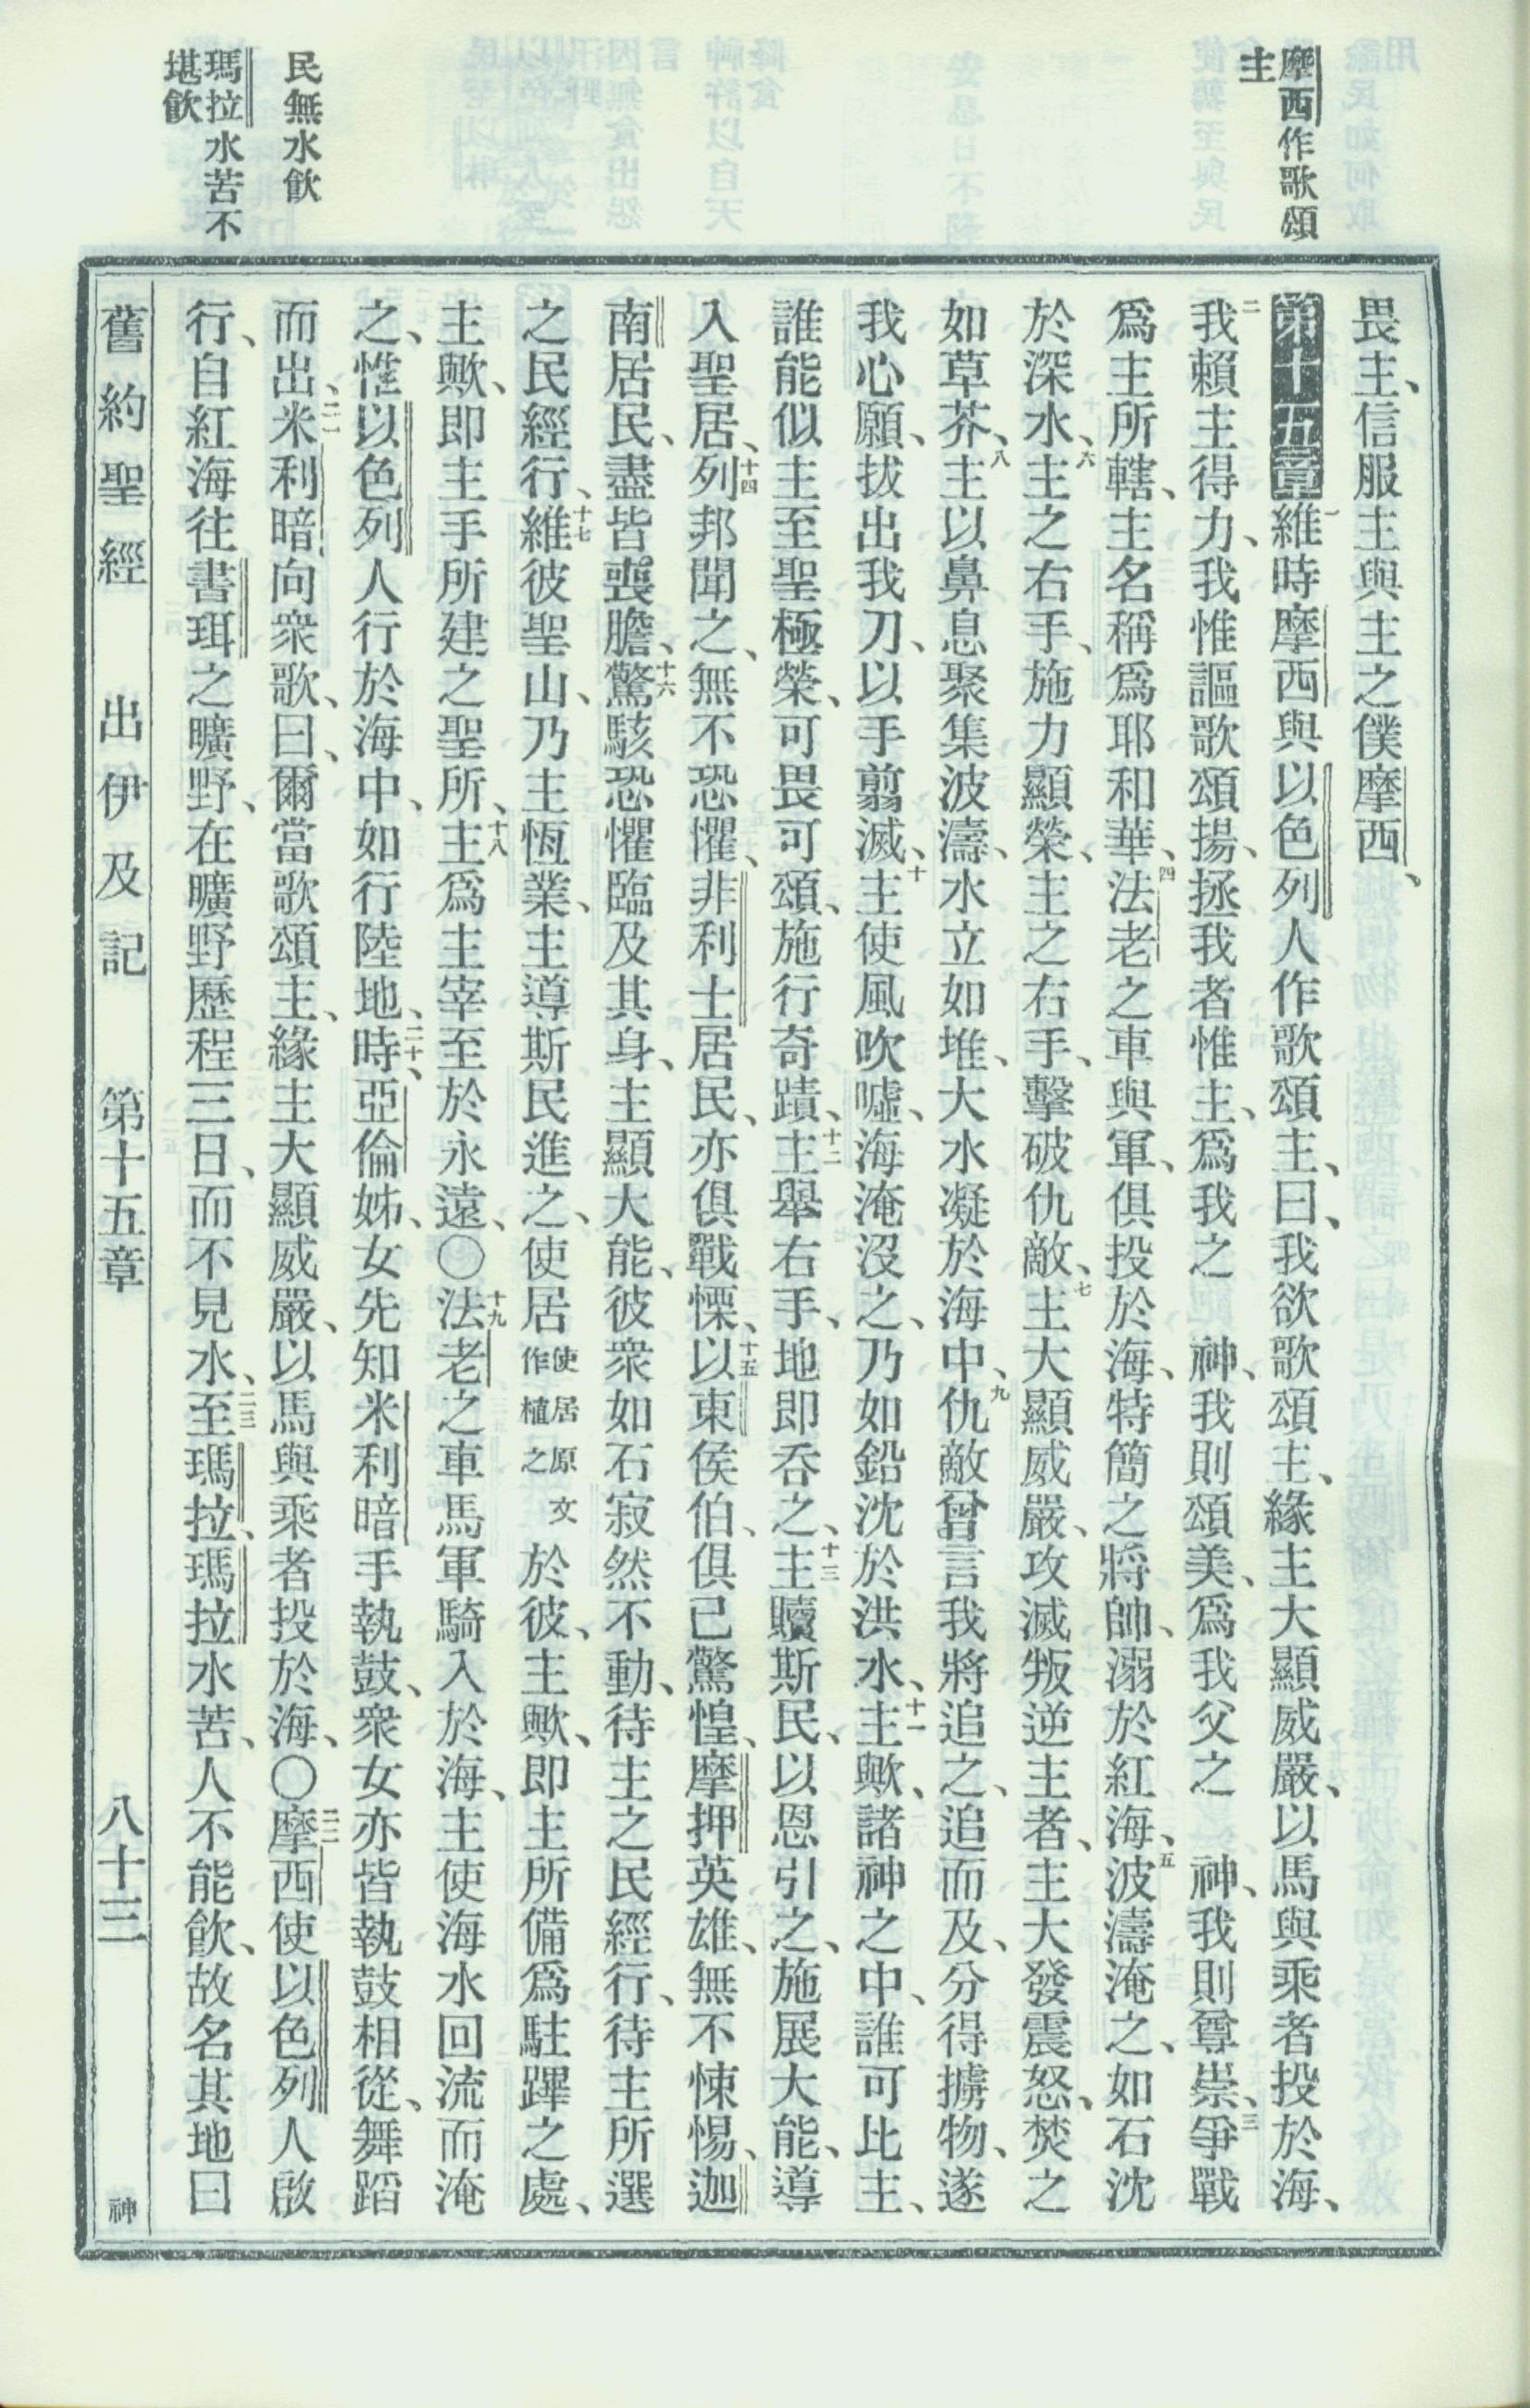 摩西作歌頌
主
民無水飲
瑪拉水苦不
堪飲
畏主、信服主與主之僕摩西、
第十五章一維時摩西與以色列人作歌頌主、曰、我欲歌頌主、緣主大顯威嚴、以馬與乘者投於海、
二我賴主得力、我惟謳歌頌揚、拯我者惟主、爲我之 神、我則頌美、爲我父之 神、我則尊崇、三爭戰
爲主所轄、主名稱爲耶和華、四法老之車與軍、俱投於海、特簡之將帥、溺於紅海、五波濤淹之、如石沈
於深水、六主之右手、施力顯榮、主之右手、擊破仇敵、七主大顯威嚴、攻滅叛逆主者、主大發震怒、焚之
如草芥、八主以鼻息聚集波濤、水立如堆、大水凝於海中、九仇敵曾言我將追之、追而及、分得擄物、遂
我心願、拔出我刀、以手翦滅、十主使風吹噓、海淹沒之、乃如鉛沈於洪水、十一主歟、諸神之中、誰可比主、
誰能似主至聖極榮、可畏可頌、施行奇蹟、十二主舉右手、地即吞之、十三主贖斯民、以恩引之、施展大能、導
入聖居、十四列邦聞之、無不恐懼、非利士居民、亦俱戰慄、十五以東侯伯、俱已驚惶、摩押英雄、無不悚惕、迦
南居民、盡皆喪膽、十六驚駭恐懼臨及其身、主顯大能、彼衆如石寂然不動、待主之民經行、待主所選
之民經行、十七維彼聖山、乃主恆業、主導斯民進之、使居使居原文作植之於彼、主歟、即主所備爲駐蹕之處、
主歟、即主手所建之聖所、十八主爲主宰至於永遠、○十九法老之車馬軍騎入於海、主使海水回流而淹
之、惟以色列人行於海中、如行陸地、二十時、亞倫姊、女先知米利暗手執鼓、衆女亦皆執鼓相從、舞蹈
而出、二一米利暗向衆歌、曰、爾當歌頌主、緣主大顯威嚴、以馬與乘者投於海、○二二摩西使以色列人啟
行、自紅海往書珥之曠野、在曠野歷程三日、而不見水、二三至瑪拉、瑪拉水苦、人不能飲、故名其地曰
舊約聖經 出伊及記 第十五章 八十三 神